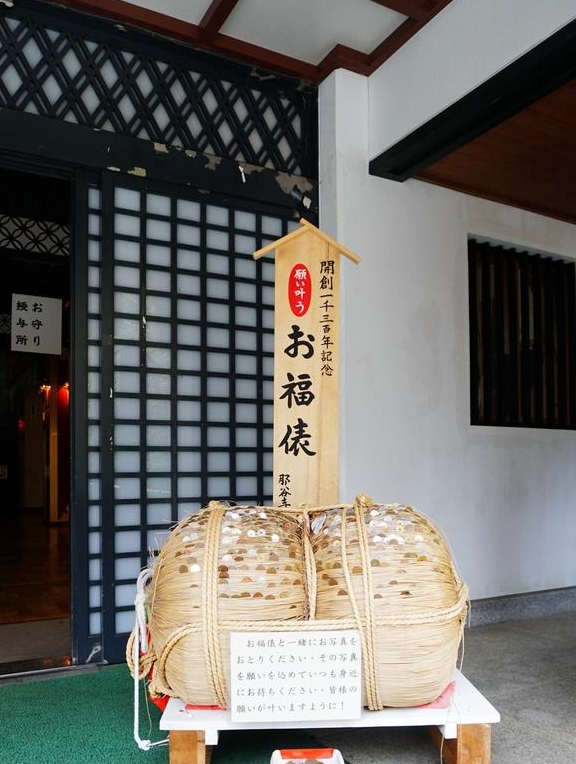 開創一千三百年記念
願い叶う
お福俵
那谷寺
お守り
授与所
お福俵と一緒にお写真を
おとりください・その写真
を願いを込めていつも身近
にお持ちください・皆様の
願いが叶いますように!